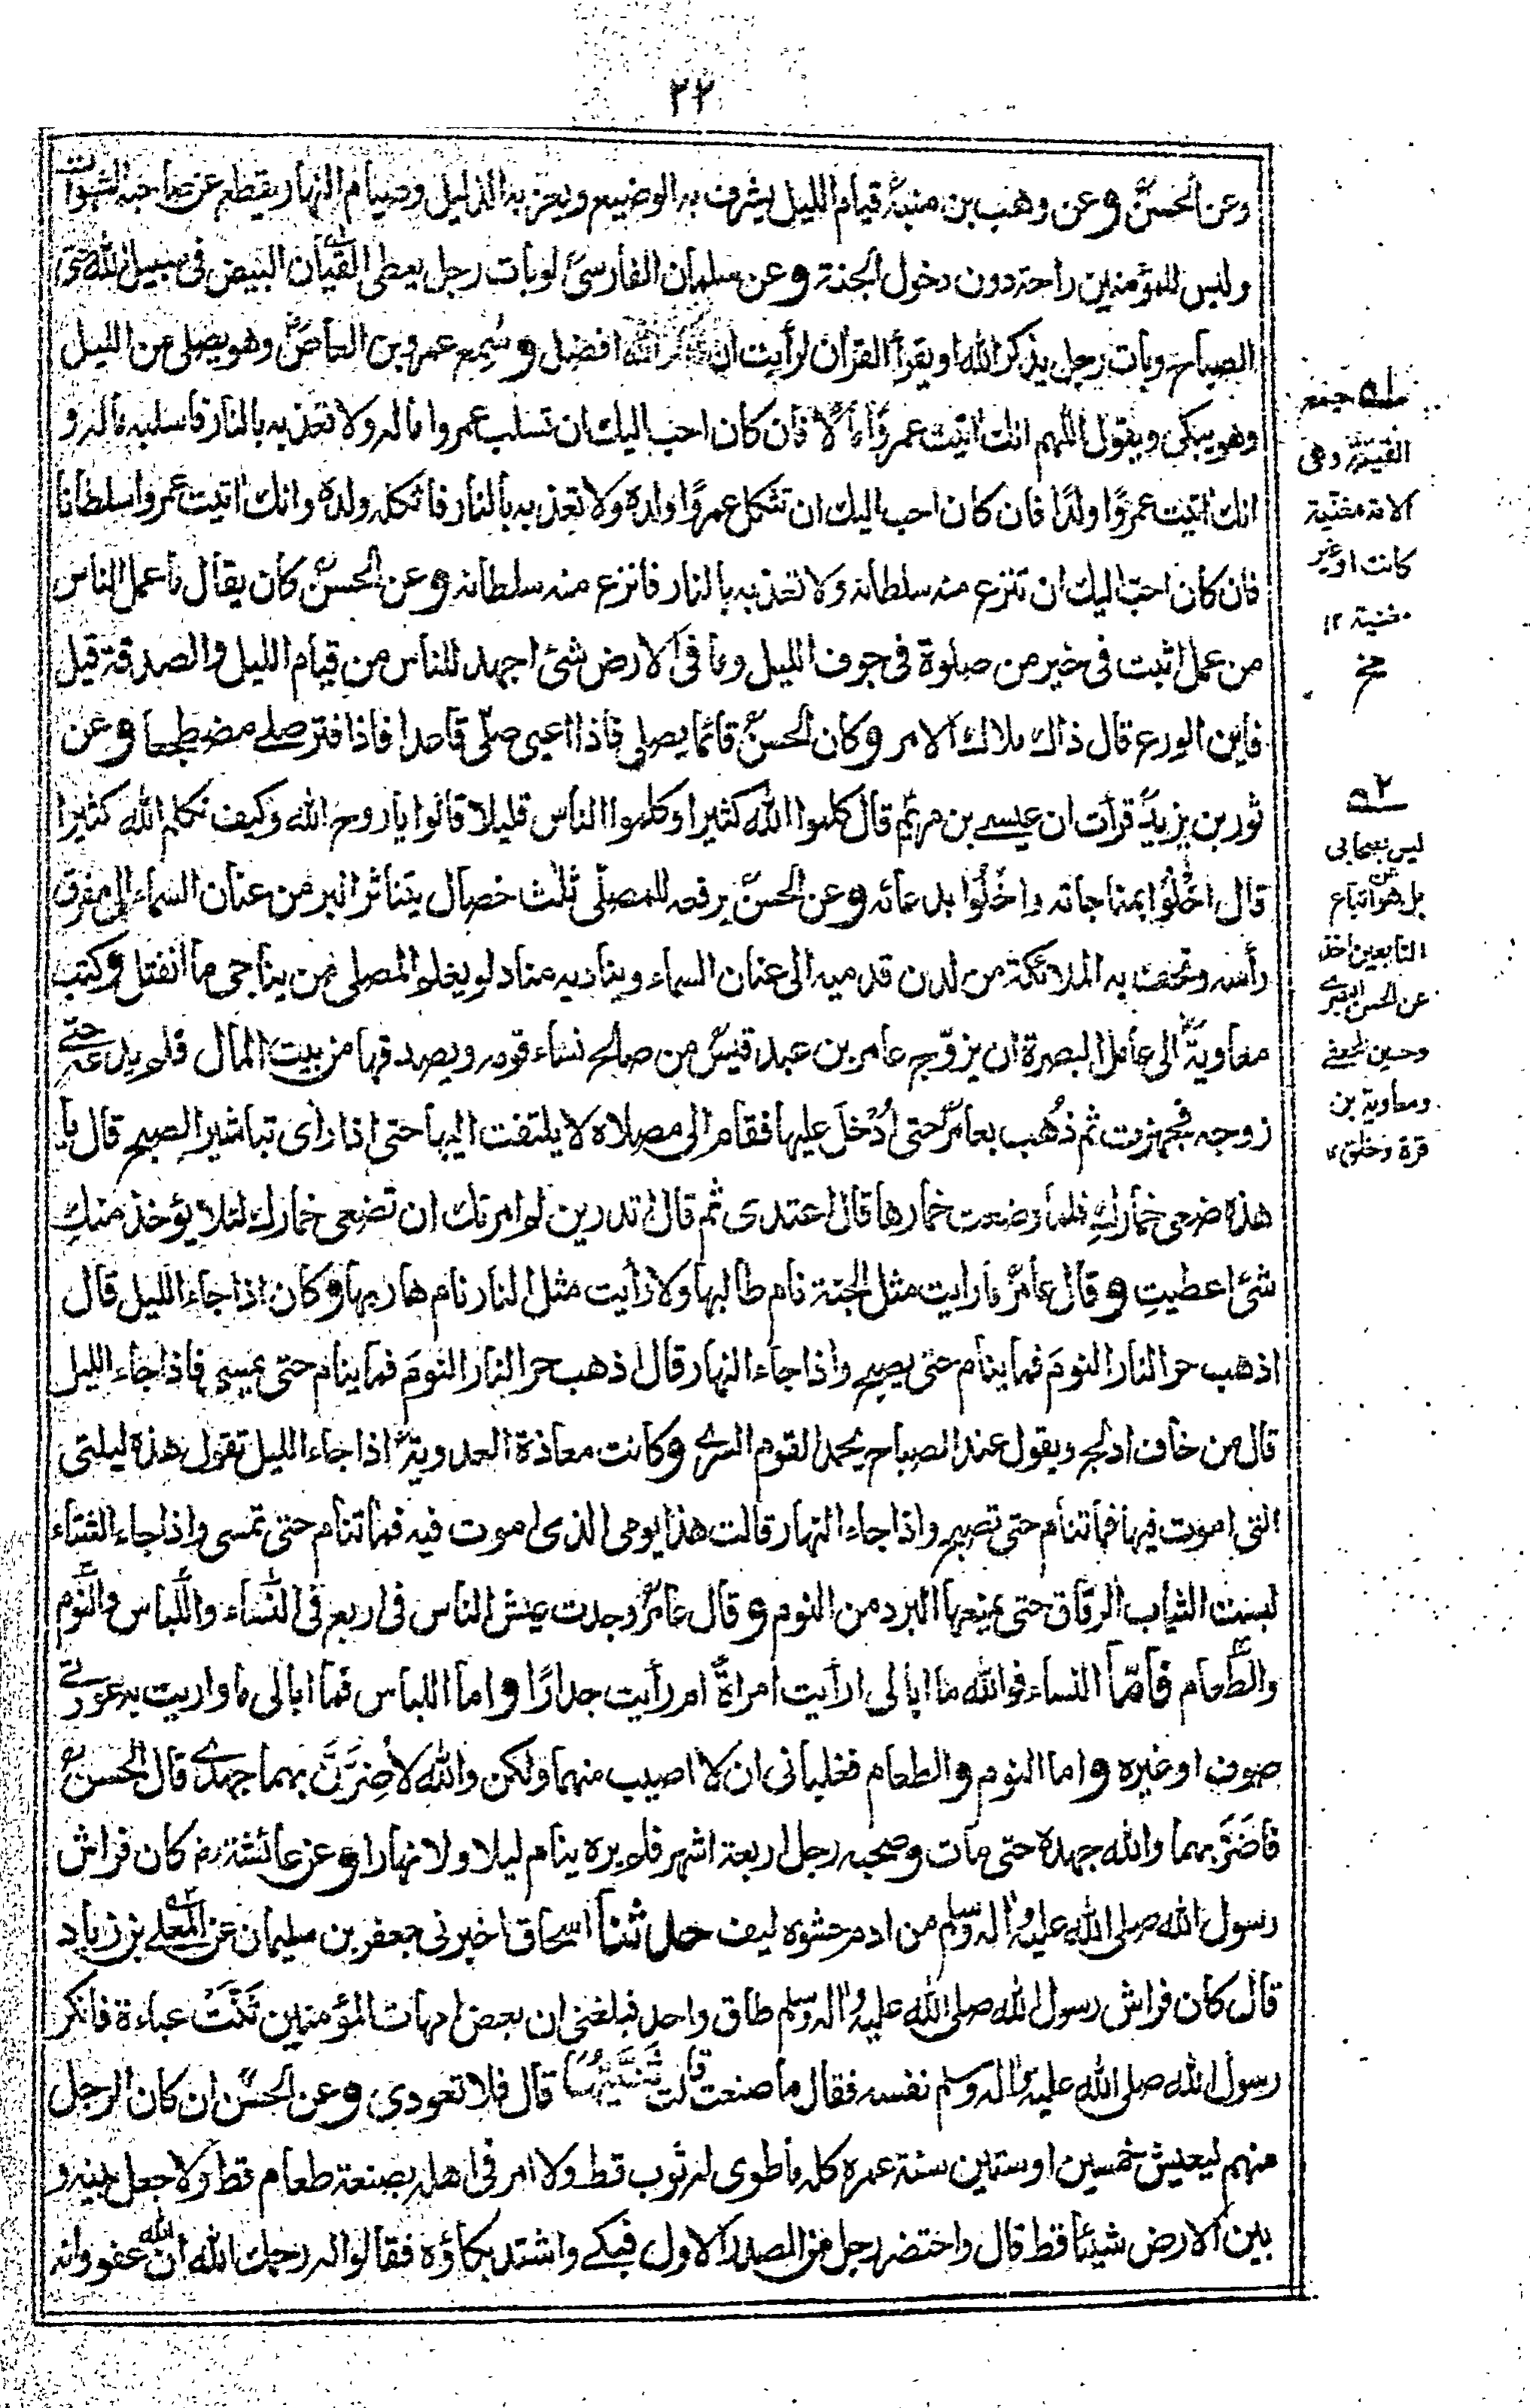 ٢٢
وعن الحسنؒ وعن وهب بن منبهؒ قيام الليل يشرف به الوضيع ويعز به الذليل وصيام النهار يقطع عن صاحبه الشهوات
وليس للمؤمنين راحة دون دخول الجنة وعن سلمان الفارسيؓ لو بات رجل يعطى القيان البيض فى سبيل الله حتى
الصباح وبات رجل يذكر الله او يقرأ القرآن لرأيت ان ذاكر الله افضل وسُمِع عمرو بن العاصؓ وهو يصلى من الليل
وهو يبكى ويقول اللهم انك اتيت عمرًوا مالًا فان كان احب اليك ان تسلب عمروا ماله ولا تعذبه بالنار فاسلبه ماله و
انك اتيت عمرًوا ولدًا فان كان احب اليك ان تثكل عمرًوا ولده ولا تعذبه بالنار فاثكله ولده وانك اتيت عمروا سلطانا
فان كان احبّ اليك ان تنزع منه سلطانه ولا تعذبه بالنار فانزع منه سلطانه وعن الحسنؒ كان يقال ما عمل الناس
من عمل اثبت فى خير من صلوة فى جوف الليل وما فى الارض شئ اجهد للناس من قيام الليل والصدقة قيل
فاين الورع قال ذاك ملاك الامر وكان الحسنؒ قائما يصلى فاذا اعيى صلّى قاعدا فاذا فتر صلے مضطجعا وعن
ثور بن يزيدؒ قرأت ان عيسے بن مريمؑ قال كلموا الله كثيرا وكلموا الناس قليلا قالوا يا روح الله وكيف نكلم الله كثيرا
قال اخْلُوْا بمناجاته واخْلُوْا بدعائه وعن الحسنؒ يرفعه للمصلّى ثلث خصال يتناثر البر من عنان السماء الى مفرق
رأسه وتحف به الملائكة من لدن قدميه الى عنان السماء ويناديه مناد لو يعلم المصلى من يناجى ما انفتل وكتب
معاويةؓ الى عامل البصرة ان يزوّج عامر بن عبد قيسؒ من صالح نساء قومه ويصدقها من بيت المال فلم يدعه حتى
زوجه فجهزت ثم ذُهب بعامرؒ حتى اُدْخلَ عليها فقام الى مصلاه لا يلتفت اليها حتى اذا راى تباشير الصبح قال يا
هذه ضعى خماركِ فلما وضعت خمارها قال اعتدى ثم قال اتدرين لم امرتك ان تضعى خمارك لئلا يؤخذ منكِ
شئ اعطيتِ وقال عامرؒ ما رايت مثل الجنة نام طالبها ولا رأيت مثل النار نام هاربها وكان اذا جاء الليل قال
اذهب حر النار النومَ فما ينام حتى يصبح واذا جاء النهار قال اذهب حر النار النومَ فما ينام حتى يمسى فاذا جاء الليل
قال من خاف ادلج ويقول عند الصباح يحمد القوم السرے وكانت معاذة العدويةؒ اذا جاء الليل تقول هذه ليلتى
التى اموت فيها فما تنام حتى تصبح واذا جاء النهار قالت هذا يومى الذى اموت فيه فما تنام حتى تمسى واذا جاء الشتاء
لبست الثياب الرقاق حتى يمنعها البرد من النوم وقال عامرؒ وجدت عيش الناس فى اربع فى النّساء واللّباس والنّوم
والطّعام فامّا النساء فوالله ما ابالى ارأيت امراةً ام رأيت جدارًا واما اللباس فما ابالى ما واريت به عورتے
صوف او غيره واما النوم والطعام فغلبانى ان لا اصيب منهما ولكن والله لاُضِرَّنَّ بهما جهدے قال الحسنؒ
فاَضَرَّ بهما والله جهده حتى مات وصحبه رجل اربعة اشهر فلم يره ينام ليلا ولا نهارا وعن عائشةؓ كان فراش
رسول الله صلى الله عليه واله وسلم من ادم حشوه ليف حدثنا اسحاق اخبرنى جعفر بن سليمان عن المعلے بن زياد
قال كان فراش رسول الله صلى الله عليه واله وسلم طاق واحد فبلغنى ان بعض امهات المؤمنين ثَنَّتْ عباءة فانكر
رسول الله صلى الله عليه واله وسلم نفسه فقال ما صنعت قالت ثَنَّيْتُها قال فلا تعودى وعن الحسنؒ ان كان الرجل
منهم ليعيش خمسين او ستين سنة عمره كله ما طوى له ثوب قط ولا امر فى اهله بصنعة طعام قط ولا جعل بينه و
بين الارض شيئا قط قال واحتضر رجل من الصدر الاول فبكے واشتد بكاؤه فقالوا له رحمك الله ان الله عفو وانه
١ے جمع
القينة وهى
الامة مغنية
كانت او غير
مغنية ١٢
٢ے
ليس بصحابى
بل هو من اتباع
التابعين اخذ
عن الحسن البصرے
ومعاوية بن
قرة وخلق ١٢